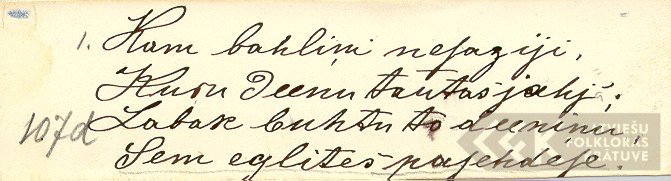 1. Kam bahliņi nesaziji,
Kuru deenu tautas jahj;
107d
Labak buhtu to deeninu
Sem eglites pasehdese.
LATVIEŠU
FOLKLORAS
KRĀTUVE